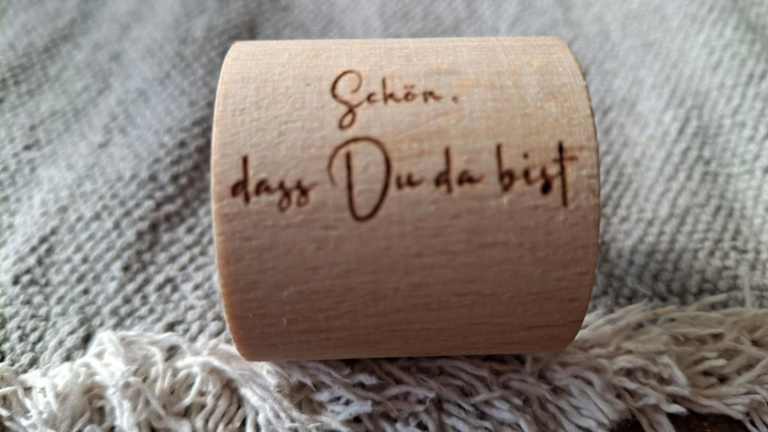 Schön,
dass Du da bist